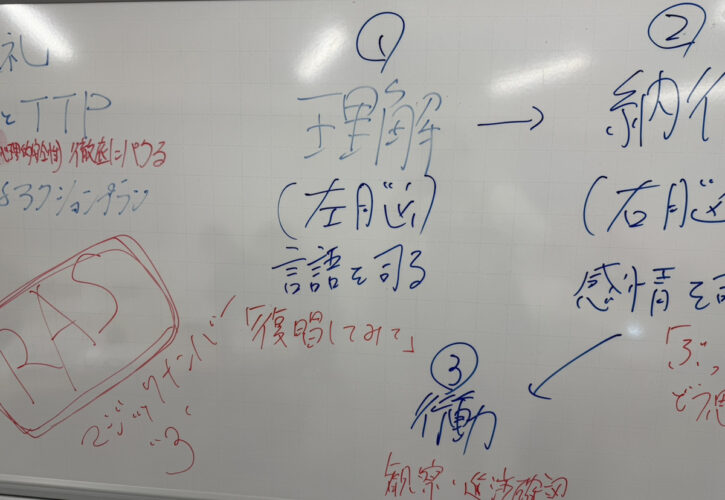 礼
と TTP
徹底にパクる
アクションプラン
RAS
マジックナンバー
"3"
①
理解 →
(左脳)
言語を司る
「復唱してみて」
②
納得
(右脳
感情を司
どう思
③
行動
観察・